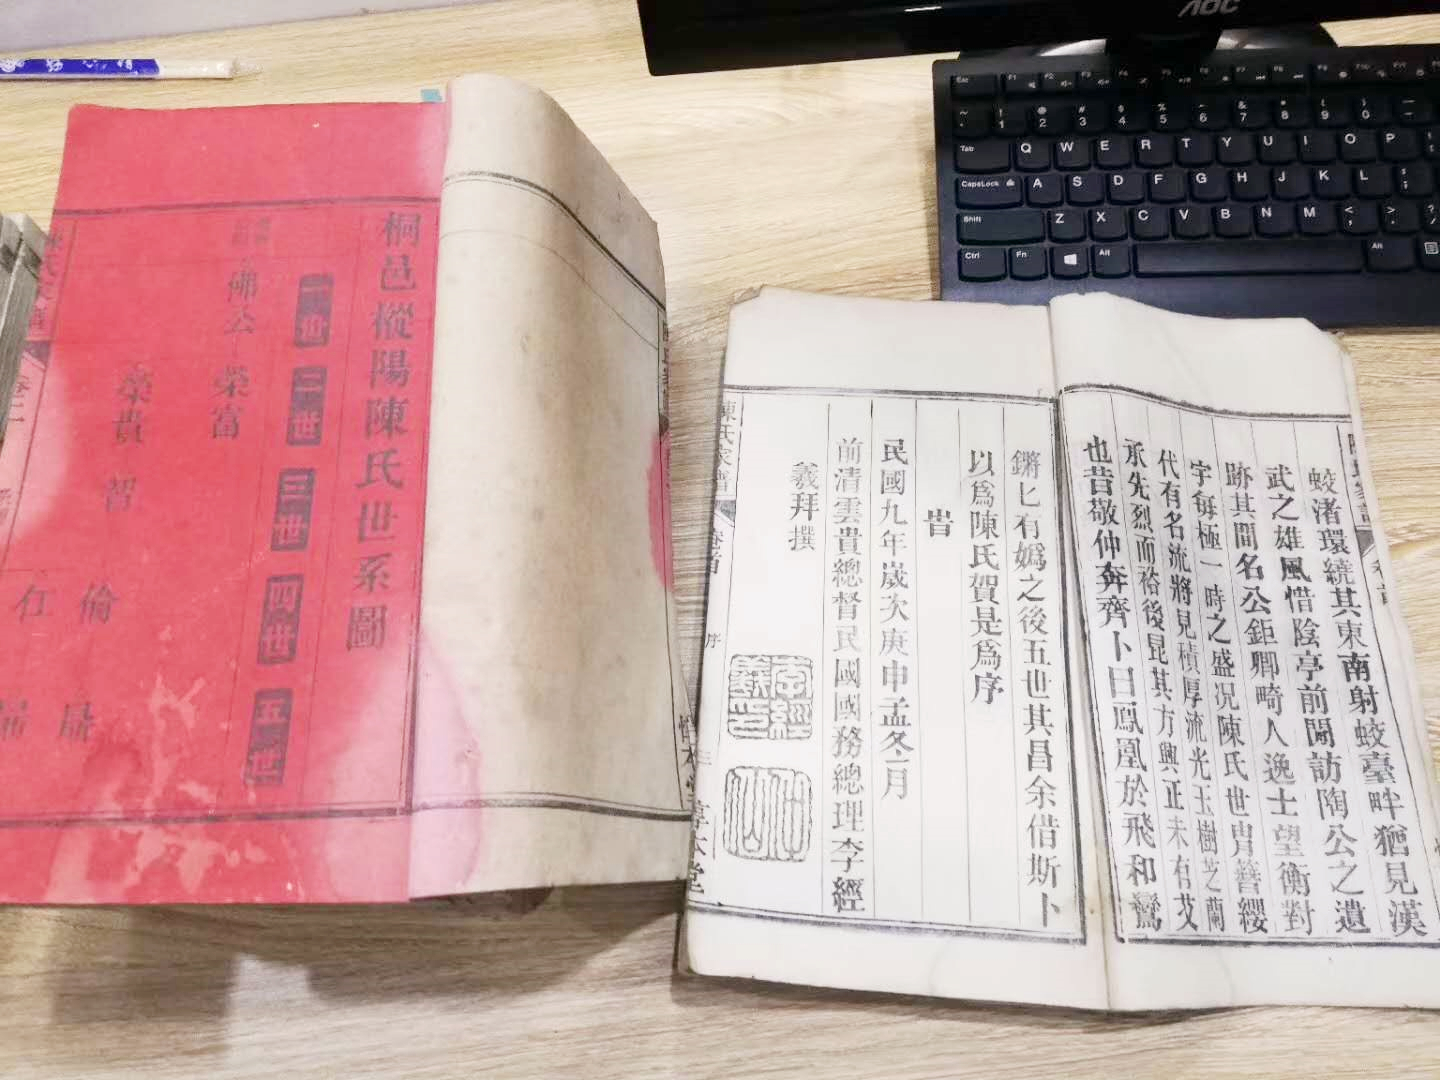 桐邑樅陽陳氏世系圖
一世 二世 三世 四世 五世
佛公 榮富
榮貴 智
倫
蛟渚環繞其東南射蛟臺畔猶見漢
武之雄風惜陰亭前閒訪陶公之遺
跡其間名公鉅卿畸人逸士望衡對
宇每極一時之盛况陳氏世胄簪纓
代有名流將見積厚流光玉樹芝蘭
承先烈而裕後昆其方興正未有艾
也昔敬仲奔齊卜曰鳳凰於飛和鸞
鏘匕有嬀之後五世其昌余借斯卜
以爲陳氏賀是爲序
旹
民國九年歲次庚申孟冬月
前清雲貴總督民國國務總理李經
羲拜撰
李經羲印
仲仙
陳氏家譜 卷首 序
AOC
Esc F1 F2 F3 F4
Tab Q W E R T Y U I O P
CapsLock A S D F G H J K L
Shift Z X C V B N M
Ctrl Fn Alt Alt